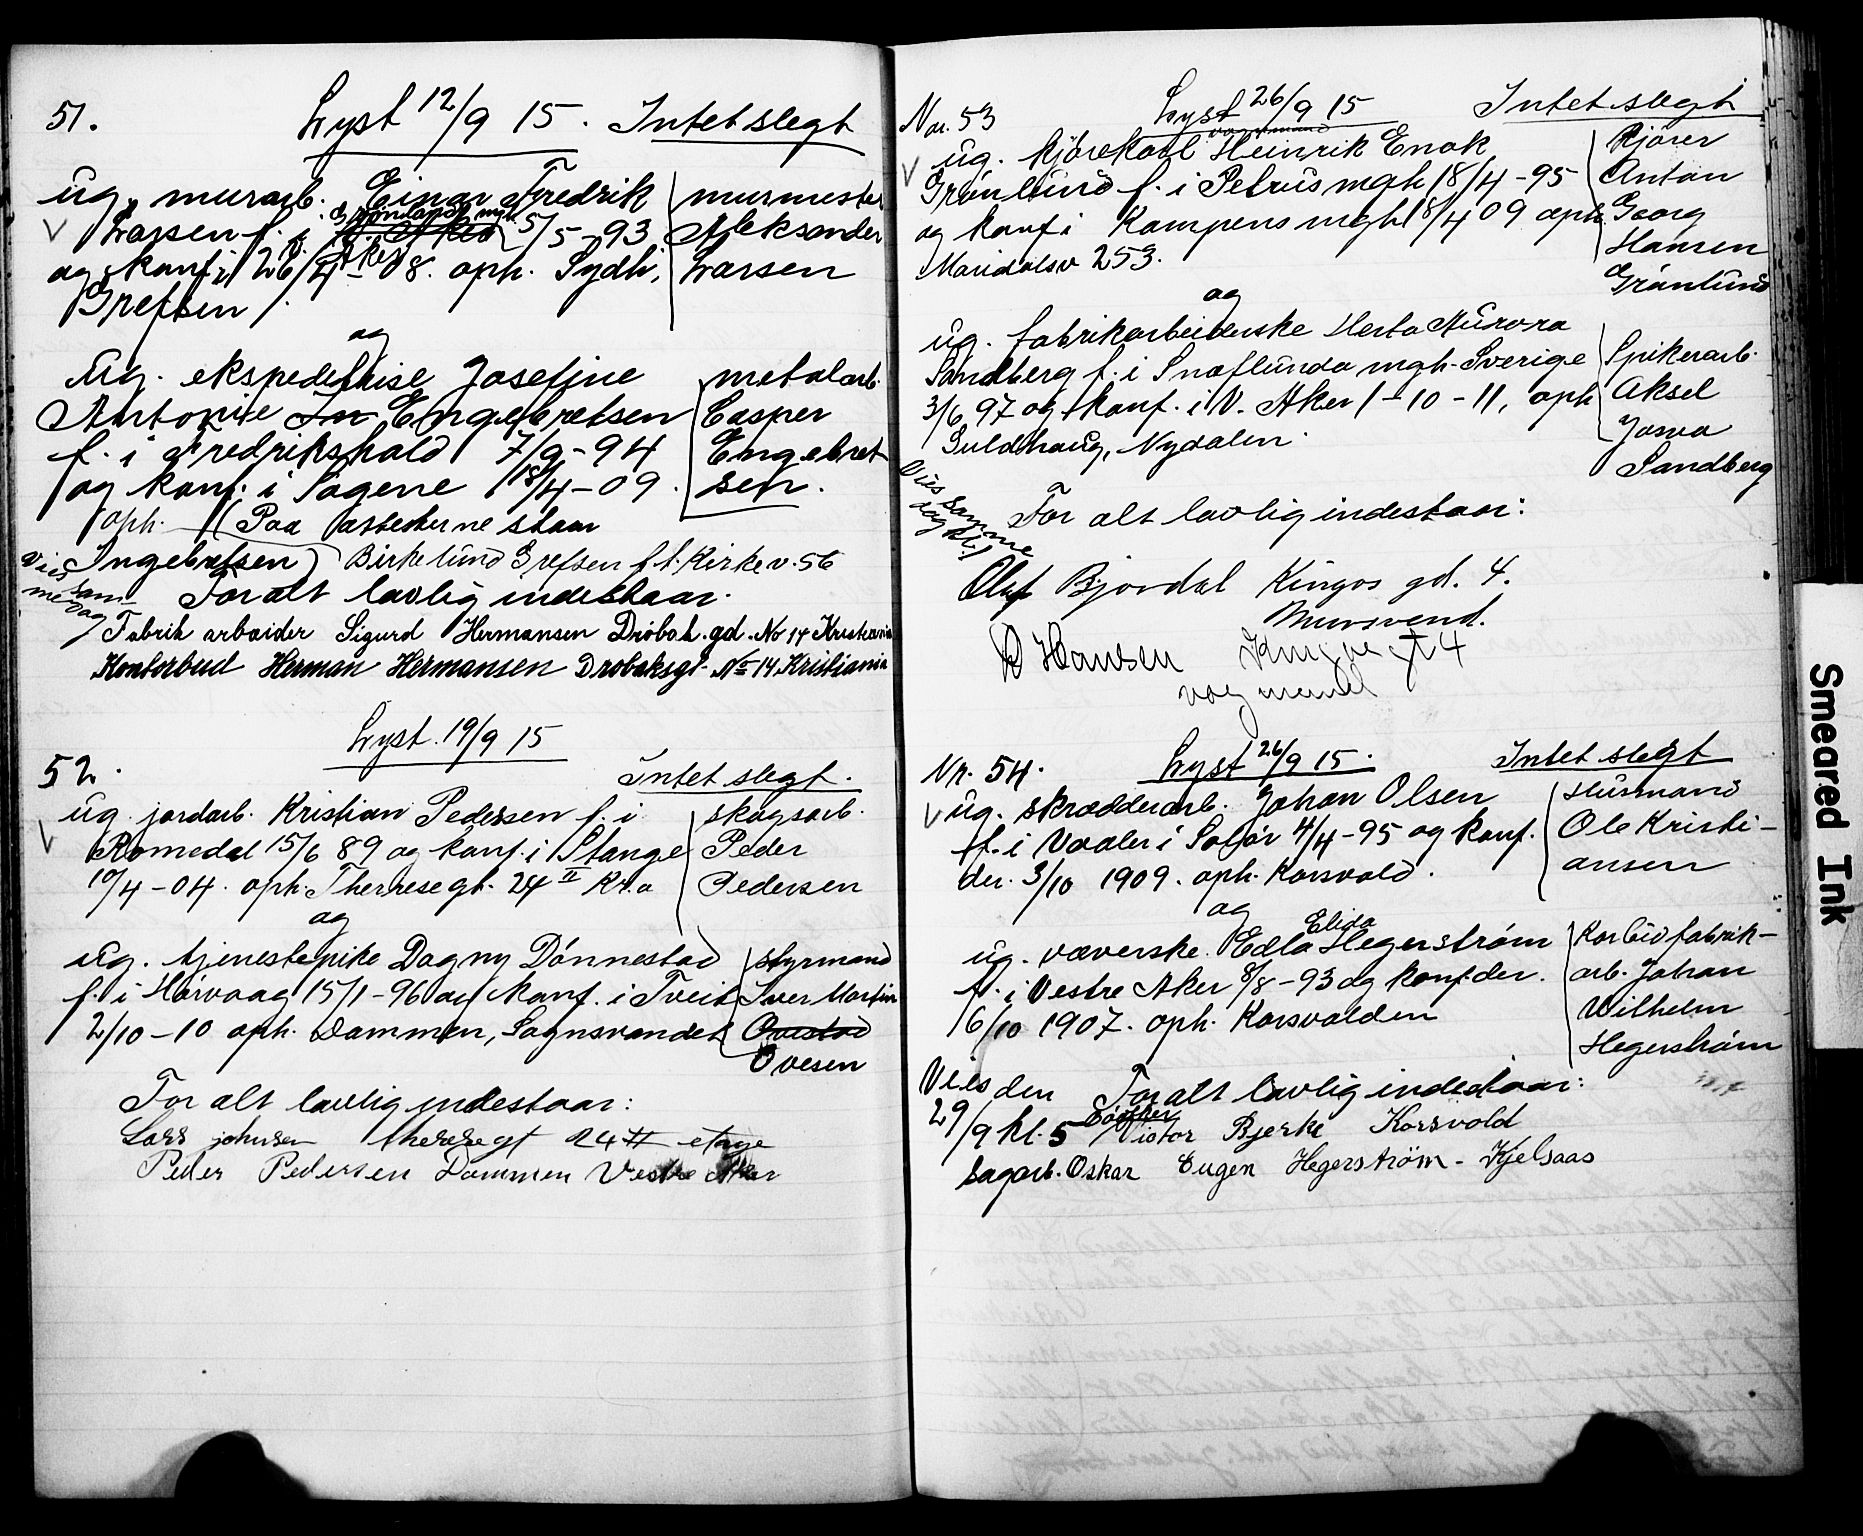 51. Lyst 12/9 15. Intet slegt
ug. murarb. Einar Fredrik murmester
Grønlands mgh
Larsen f. i V. Aker 5/5-93 Aleksander
Aker
og konf. i 26/4-08. oph. Sydh., Larsen
Grefsen
og
Ug. ekspeditrise Josefine metalarb.
Antonie Engebretsen Casper
f. i Fredrikshald 7/9-94 Engebret
og konf. i Sagene 18/4-09. sen.
oph. (Paa attesterne staar
Ingebretsen) Birkelund Grefsen f. t. Kirkev. 56
Vies samme dag
For alt lovlig indestaar.
Fabrik arbeider Sigurd Hermansen Drøbak.gd. No 14 Kristiania
Kontorbud Herman Hermansen Drøbaksgt. No 14 Kristiania
Lyst. 19/9 15
52. Intet slegt.
ug. jordarb. Kristian Pedersen f. i skogsarb.
Romedal 15/6 89 og konf. i Stange Peder
10/4-04. oph. Theresegt. 24 II Kr.a Pedersen
og
ug. tjenestepike Dagny Dønnestad styrmand
f. i Høivaag 15/1-96 og konf. i Tveit Iver Martin
2/10-10 oph. Dammen, Sognsvandet Ovestad
Ovesen
For alt lovlig indestaar:
Lars Johnsen theresegt 24 II etage
Peder Pedersen Dammen Vestre Aker
No. 53 Lyst 26/9 15 Intet slegt
vognmand
ug. kjørekarl Heinrik Enok Kjører
Grønlund f. i Petrus mgh 18/4-95 Anton
og konf i Kampens mgh 18/4 09 oph. Georg
Maridalsv 253. Hansen
Grønlund
og
ug. fabrikarbeiderske Herta Aurora
Sandberg f. i Snaflunda mgh. Sverige Spikerarb.
3/6 97 og konf. i V. Aker 1-10-11, oph Aksel
Guldhaug, Nydalen. Josva
Sandberg
Vies samme dag kl.
For alt lovlig indestaar:
Oluf Bjordal Kingos gd. 4.
Mursvend.
D Hansen Kingos gt 4
vogmand
Nr. 54. Lyst 26/9 15. Intet slegt
ug. skrædderarb. Johan Olsen Husmand
f. i Vaaler i Solør 4/4-95 og konf. Ole Kristi-
der. 3/10 1909. oph. Korsvold. ansen
og
Elida
ug. væverske. Edla Hegerstrøm Karbidfabrik-
f. i Vestre Aker 8/8-93 og konf der. arb. Johan
6/10 1907. oph. Korsvolden Wilhelm
Hegerstrøm
Vies den For alt lovlig indestaar:
29/9 kl. 5 Victor Bjerke Korsvold
Sagarb. Oskar Eugen Hegerstrøm - Kjelsaas
Smeared Ink